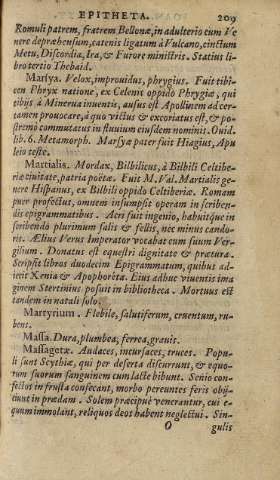 EPITHETA. 209
Romuli patrem, fratrem Bellonæ, in adulterio cum Ve
nere depræhensum, catenis ligatum à Vulcano, cinctum
Metu, Discordia, Ira, & Furore ministris. Statius li
bro tertio Thebaid.
Marsya. Velox, improuidus, phrygius. Fuit tibi=
cen Phryx natione, ex Celenis oppido Phrygiæ, qui
tibijs à Minerua inuentis, ausus est Apollinem ad cer-
tamen prouocare, à quo victus & excoriatus est, & po=
stremò commutatus in fluuium eiusdem nominis. Ouid.
lib. 6. Metamorph. Marsyæ pater fuit Hiagius, Apu
leio teste.
Martialis. Mordax, Bilbilicus, à Bilbili Celtibe=
riæ ciuitate, patria poëtæ. Fuit M. Val. Martialis ge=
nere Hispanus, ex Bilbili oppido Celtiberiæ. Romam
puer profectus, omnem insumpsit operam in scriben=
dis epigrammatibus. Acri fuit ingenio, habuitque in
scribendo plurimum salis & fellis, nec minus cando=
ris. Ælius Verus Imperator vocabat eum suum Ver=
gilium. Donatus est equestri dignitate & prætura.
Scripsit libros duodecim Epigrammatum, quibus ad=
iecit Xenia & Apophoreta. Eius adhuc viuentis ima
ginem Stertinius posuit in bibliotheca. Mortuus est
tandem in natali solo.
Martyrium. Flebile, salutiferum, cruentum, ru=
bens.
Massa. Dura, plumbea, ferrea, grauis.
Massagetæ. Audaces, incursaces, truces. Popu=
li sunt Scythiæ, qui per deserta discurrunt, & equo=
rum suorum sanguinem cum lacte bibunt. Senio con=
fectos in frusta consecant, morbo pereuntes feris obij=
ciunt in prædam. Solem præcipuè venerantur, cui e=
quum immolant, reliquos deos habent neglectui. Sin=
O gulis